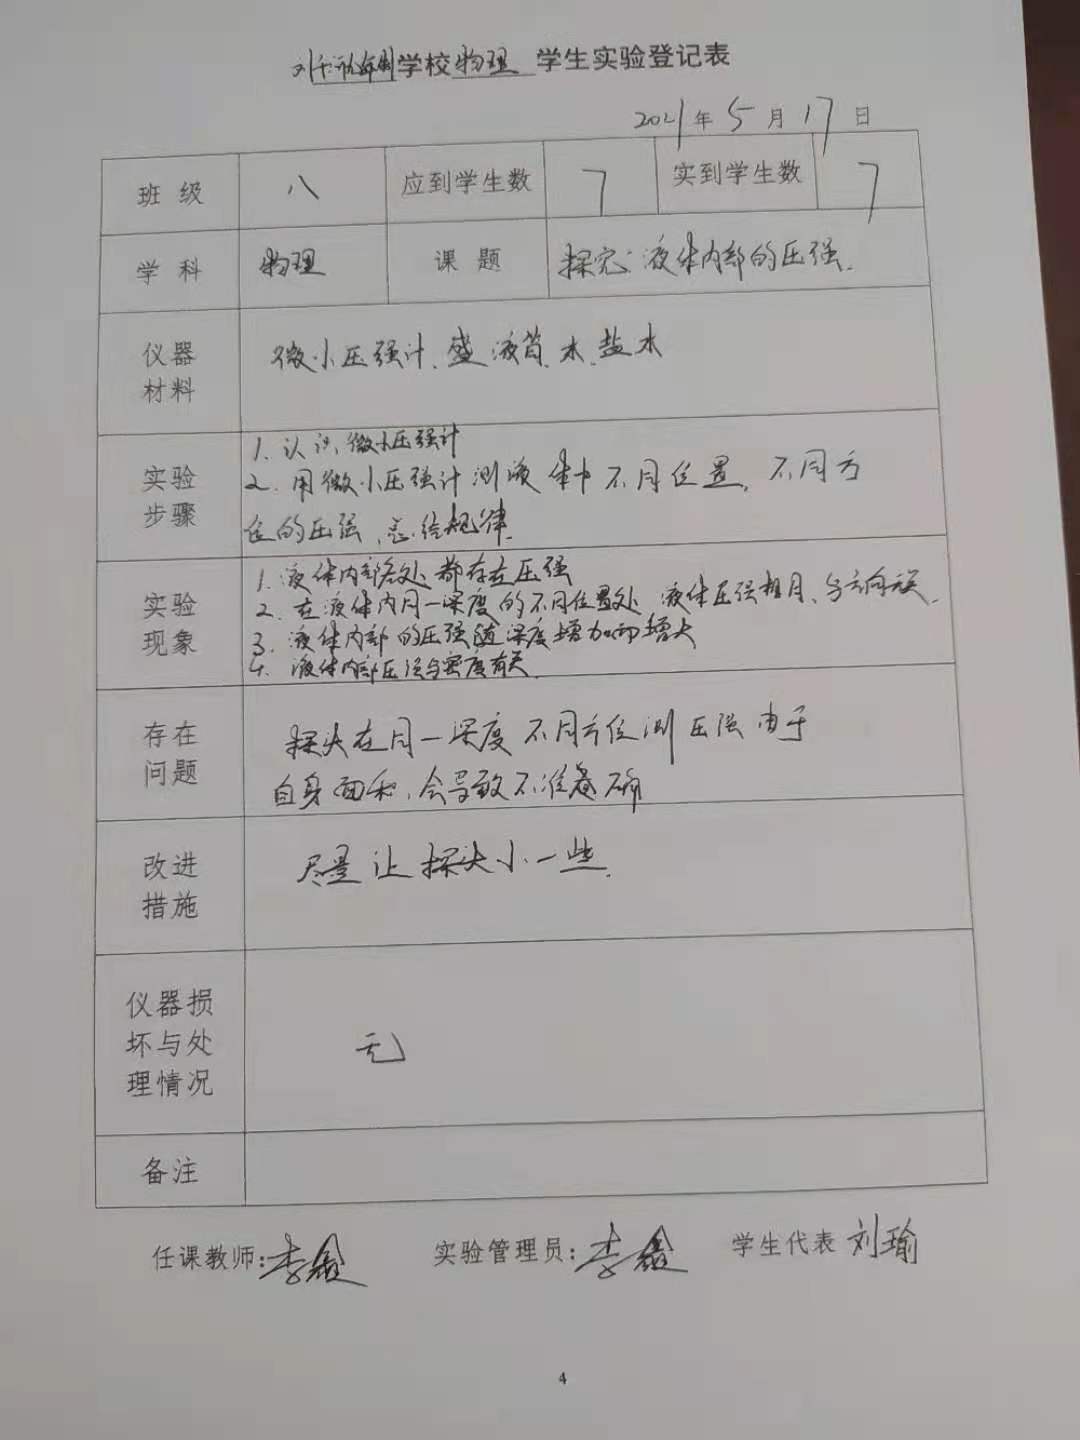 学校物理 学生实验登记表
2021年5月17日
班级 八 应到学生数 7 实到学生数 7
学科 物理 课题 探究:液体内部的压强.
仪器材料 微小压强计、盛液筒、水、盐水
实验步骤
1. 认识微小压强计
2. 用微小压强计测液体中不同位置,不同方
位的压强,总结规律.
实验现象
1. 液体内部各处都存在压强
2. 在液体内同一深度的不同位置处,液体压强相同、与方向无关.
3. 液体内部的压强随深度增加而增大
4. 液体内部压强与密度有关.
存在问题
探头在同一深度不同方位测压强由于
自身面积,会导致不准确
改进措施 尽量让探头小一些.
仪器损坏与处理情况 无
备注
任课教师:李鑫 实验管理员:李鑫 学生代表 刘瑜
4